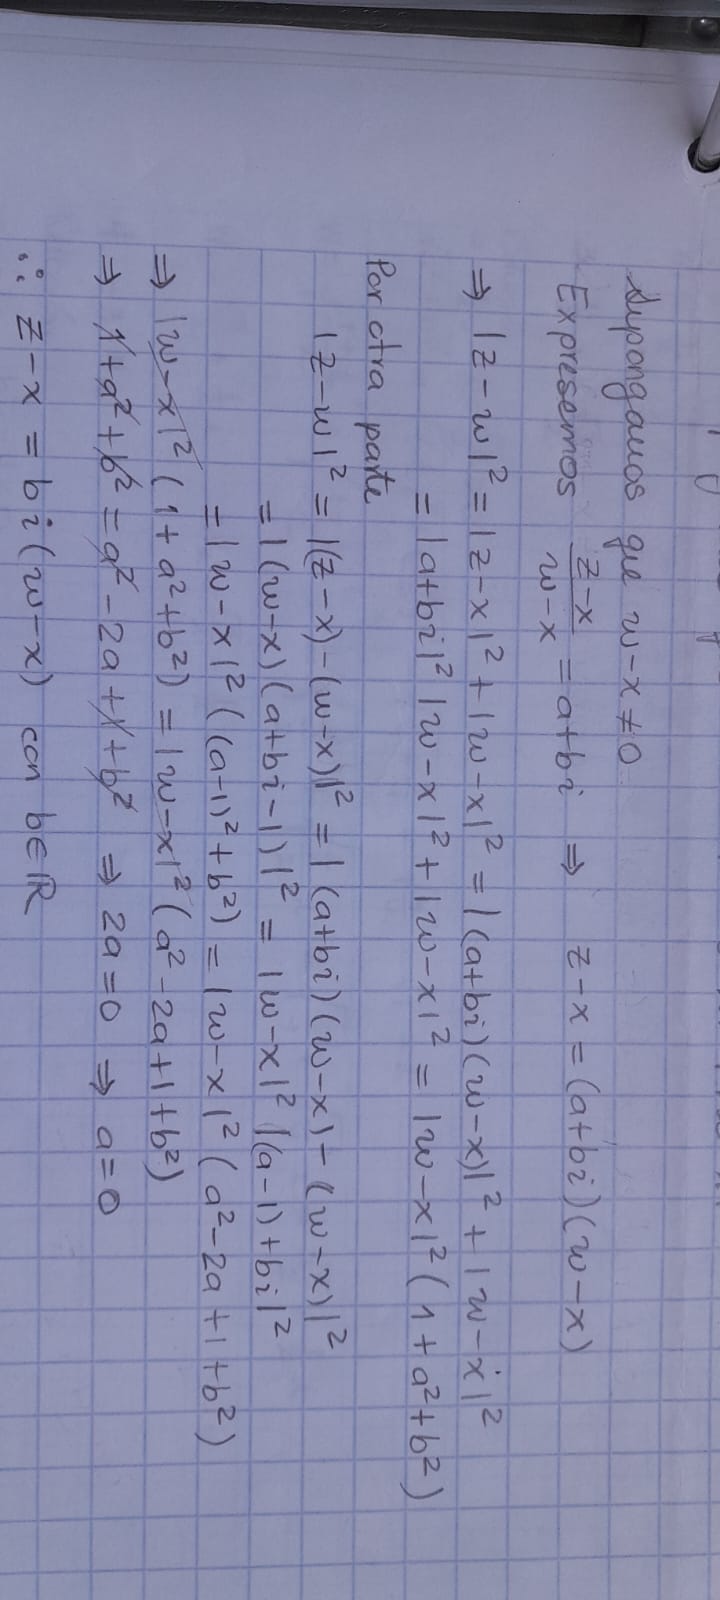 Supongamos que w-x≠0
Expresemos \frac{z-x}{w-x} = a+bi ⇒ z-x = (a+bi)(w-x)
⇒ |z-w|² = |z-x|² + |w-x|² = |(a+bi)(w-x)|² + |w-x|²
= |a+bi|² |w-x|² + |w-x|² = |w-x|² (1+a²+b²)
Por otra parte
|z-w|² = |(z-x)-(w-x)|² = |(a+bi)(w-x)-(w-x)|²
= |(w-x)(a+bi-1)|² = |w-x|² |(a-1)+bi|²
= |w-x|² ((a-1)²+b²) = |w-x|² (a²-2a+1+b²)
⇒ |w-x|² (1+a²+b²) = |w-x|² (a²-2a+1+b²)
⇒ 1+a²+b² = a²-2a+1+b² ⇒ 2a=0 ⇒ a=0
∴ z-x = bi(w-x) con b∈ℝ